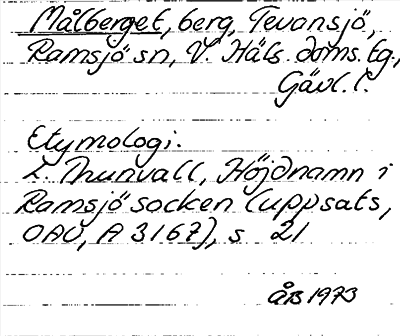 Målberget, berg, Tevansjö,
Ramsjö sn, V. Häls. doms. tg.,
Gävl. l.
Etymologi.
L. Munvall, Höjdnamn i
Ramsjö socken (uppsats,
OAU, A 3167), s 21
ÅB 1973